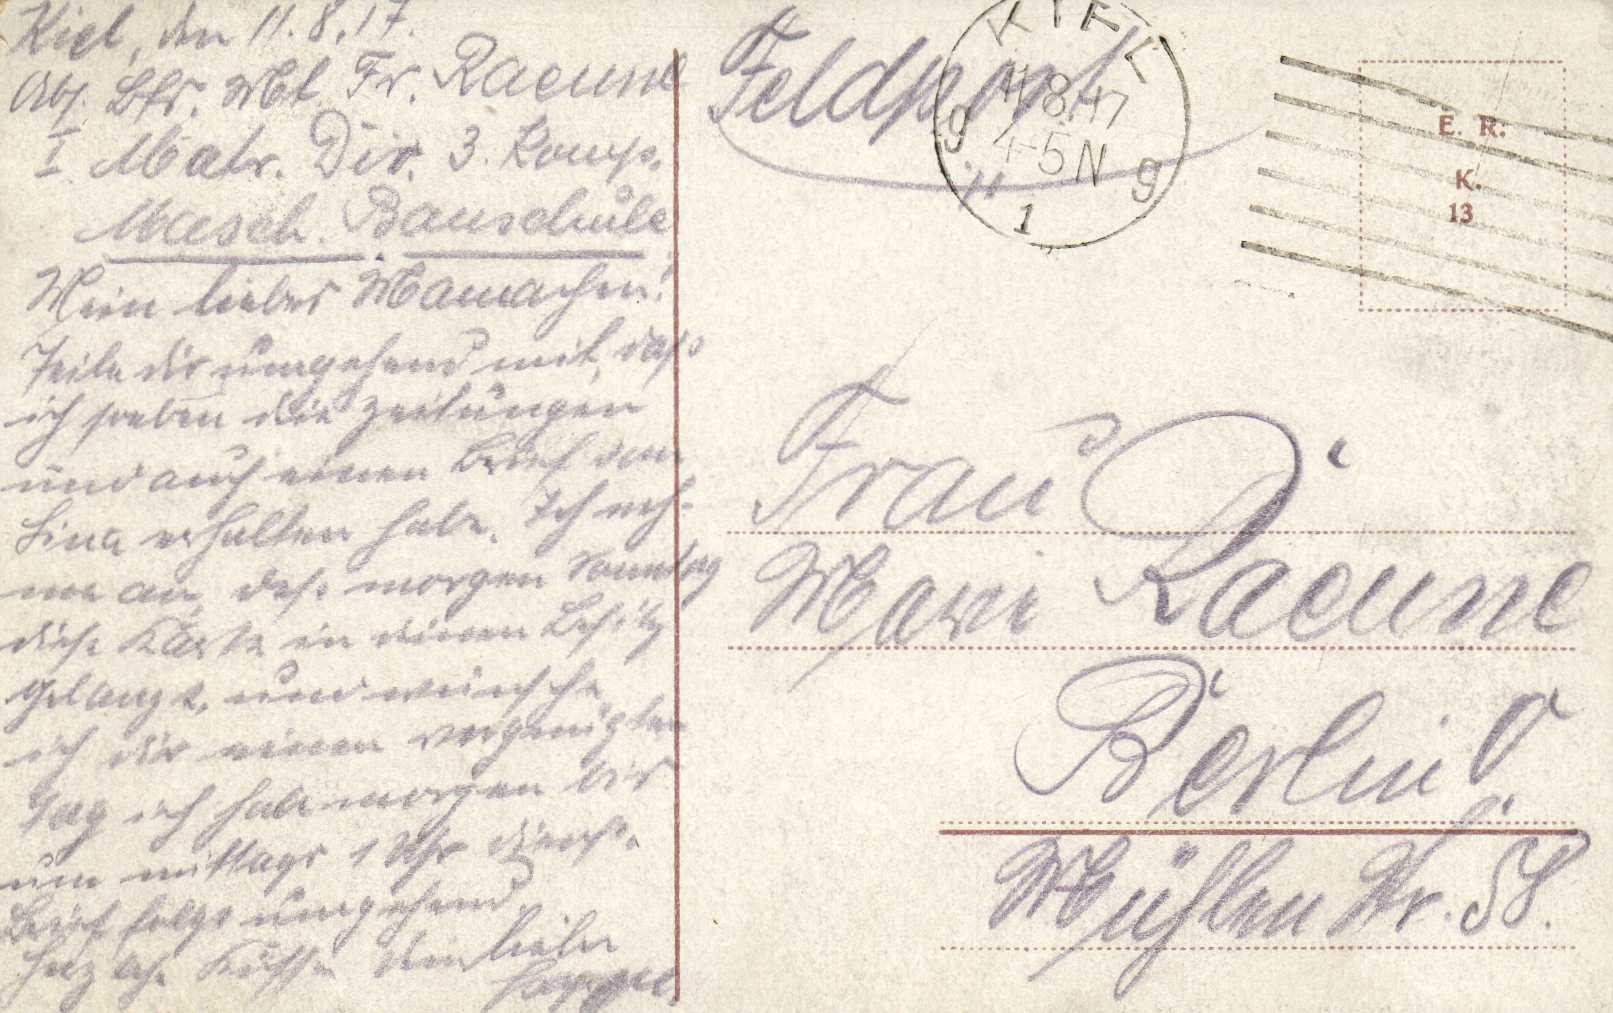 Kiel, den 11.8.17.
Abs. Ltr. Mat. Fr. Raeune
I Matr. Div. 3. Komp.
Masch. Bauschule
Mein liebes Mamachen!
Teile dir umgehend mit, daß
ich soeben die Zeitungen
und auch einen Brief von
Lina erhalten habe. Ich neh-
me an, daß morgen Sonntag
diese Karte in deinen Besitz
gelangt, und wünsche
ich dir einen vergnügten
Tag ich habe morgen bis
um mittags 1 Uhr dienst.
Brief folgt umgehend.
Herzlche Küsse dein lieber
Feldpost
KIEL
11.8.17
4-5N
g 1 g
E. R.
K.
13
Frau
Marie Raeune
Berlin O
Mühlen Str. 58.